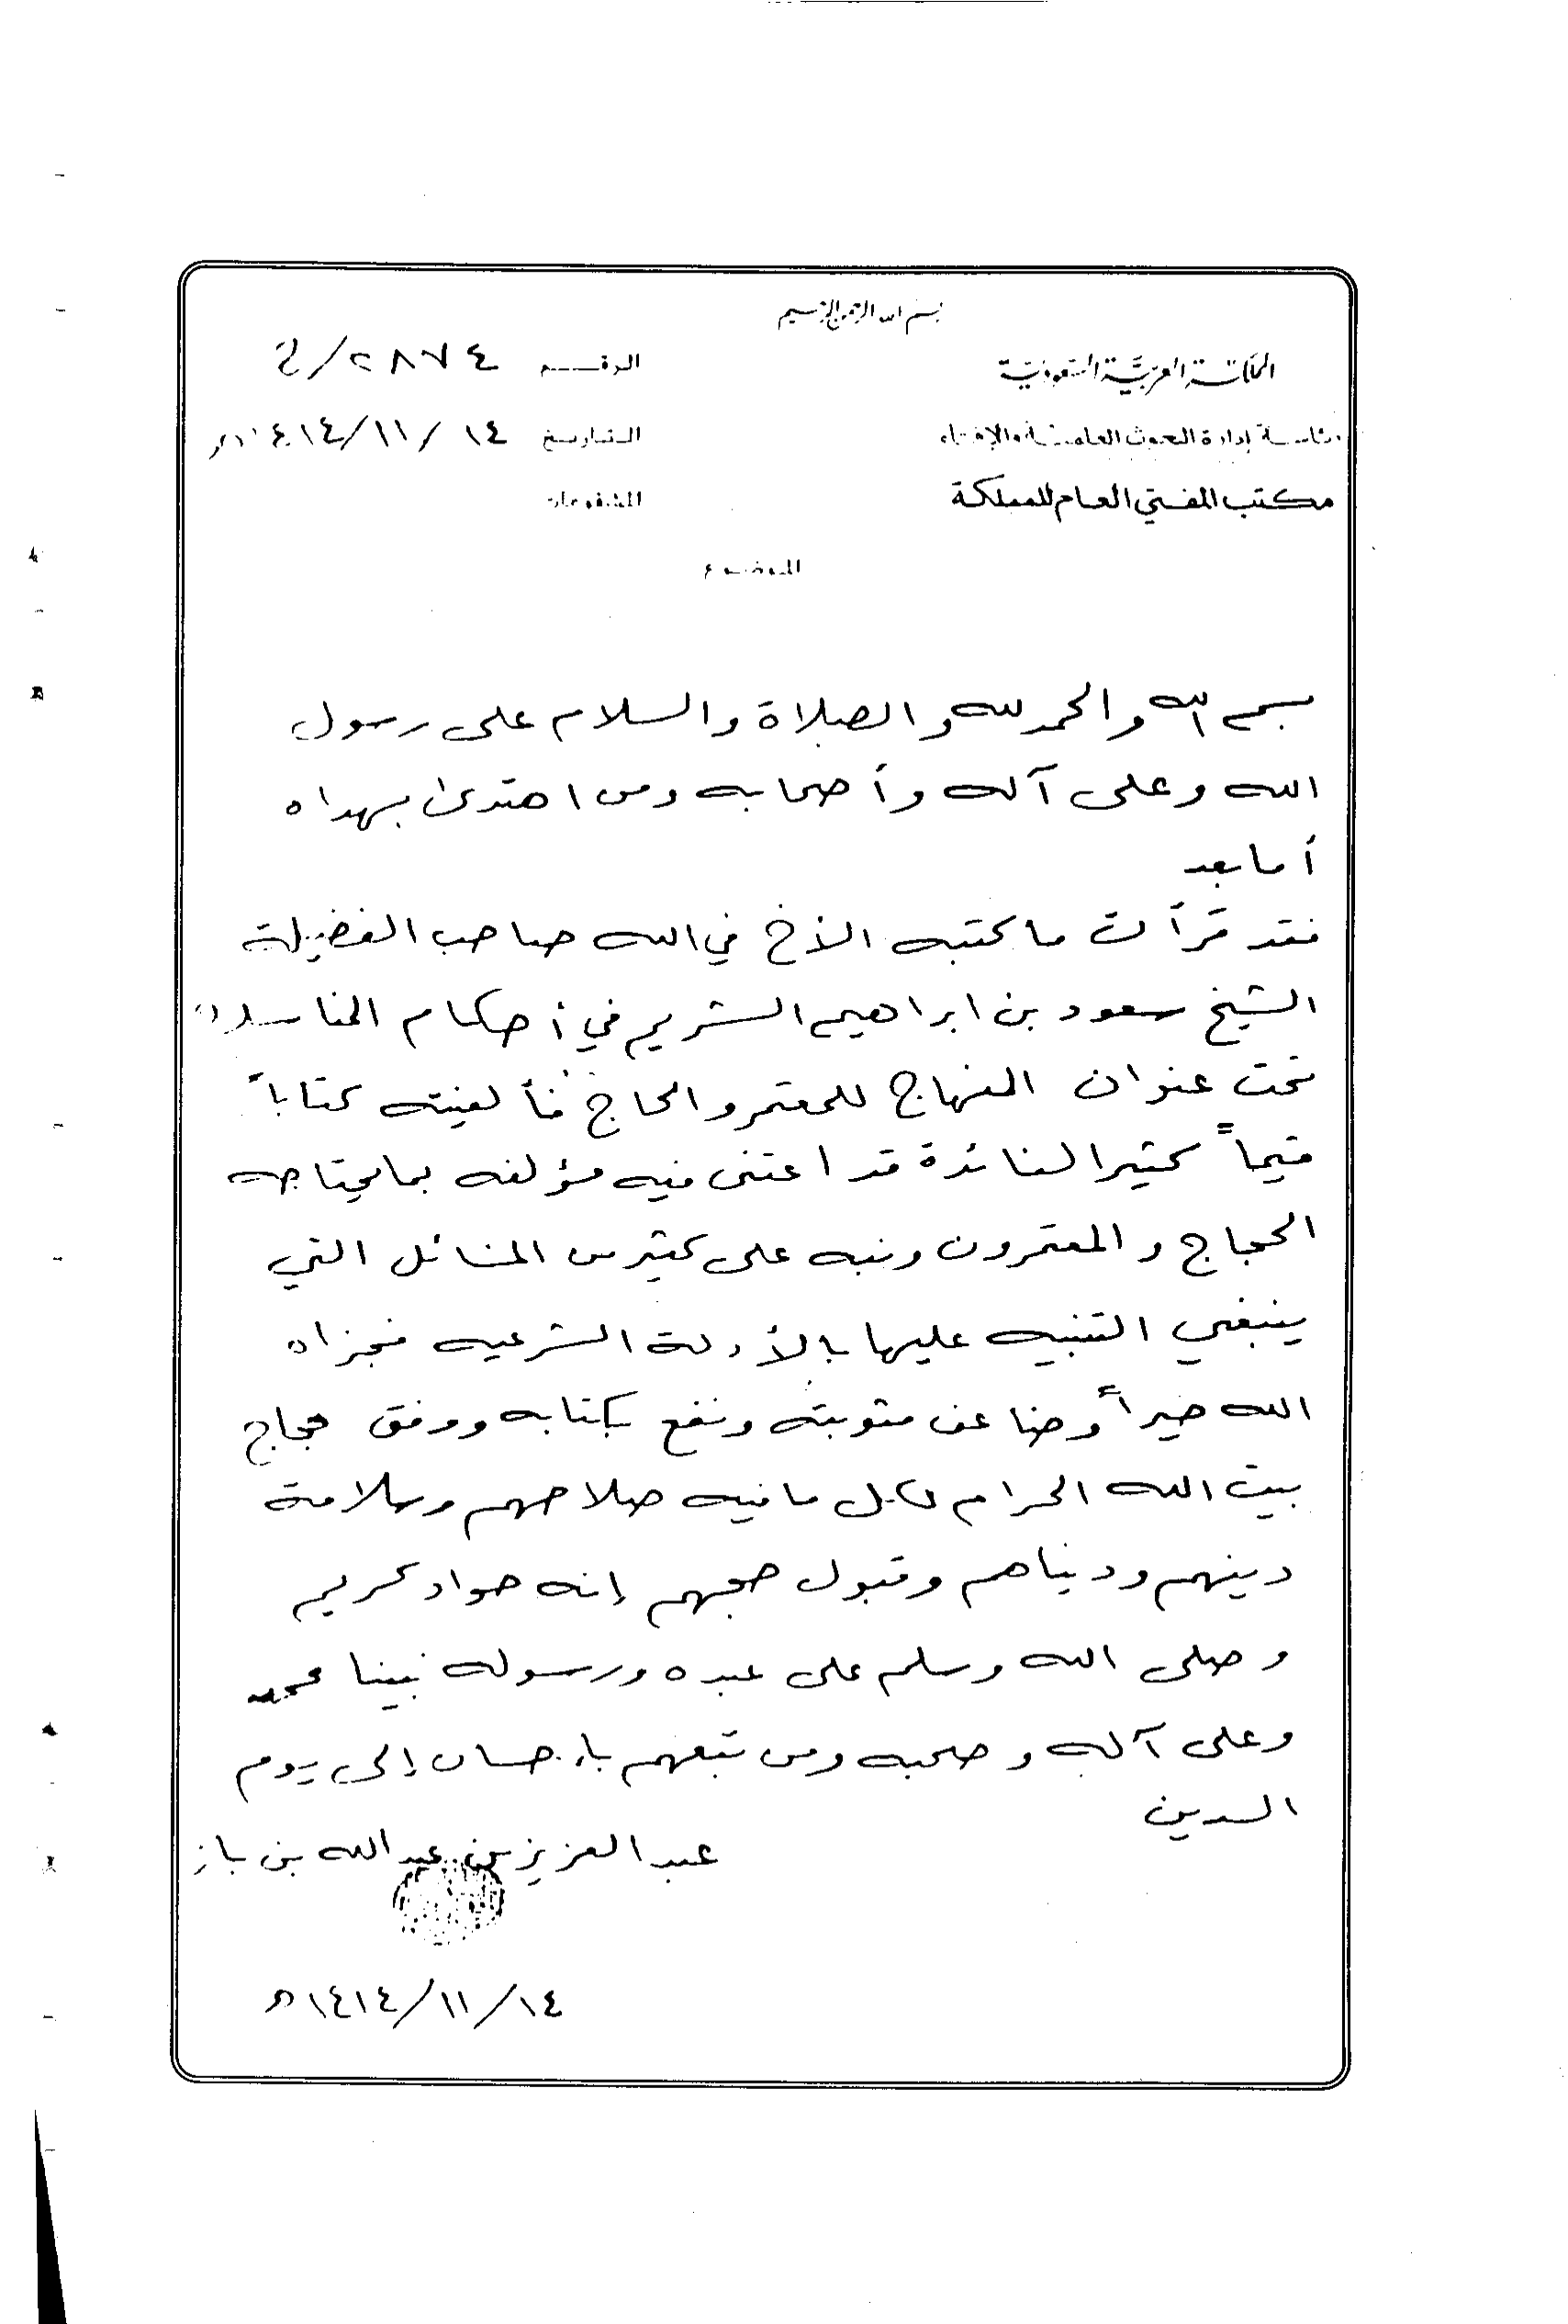 بسم الله الرحمن الرحيم
المملكة العربية السعودية
رئاسة إدارة البحوث العلمية والإفتاء
مكتب المفتي العام للمملكة
الرقم ٢٨٧٤/خ
التاريخ ١٤/١١/١٤١٤هـ
المشفوعات
الموضوع
بسم الله والحمد لله والصلاة والسلام على رسول
الله وعلى آله وأصحابه ومن اهتدى بهداه
أما بعد
فقد قرأت ما كتبه الأخ في الله صاحب الفضيلة
الشيخ سعود بن ابراهيم الشريم في أحكام المناسك
تحت عنوان المنهاج للمعتمر والحاج فألفيته كتاباً
قيماً كثير الفائدة قد اعتنى فيه مؤلفه بما يحتاجه
الحجاج والمعتمرون ونبه على كثير من المسائل التي
ينبغي التنبيه عليها بالأدلة الشرعيه فجزاه
الله خيراً وضاعف مثوبته ونفع بكتابه ووفق حجاج
بيت الله الحرام لكل ما فيه صلاحهم وسلامة
دينهم ودنياهم وقبول حجهم إنه جواد كريم
وصلى الله وسلم على عبده ورسوله نبينا محمد
وعلى آله وصحبه ومن تبعهم بإحسان إلى يوم
الدين
عبد العزيز بن عبد الله بن باز
١٤/١١/١٤١٤هـ